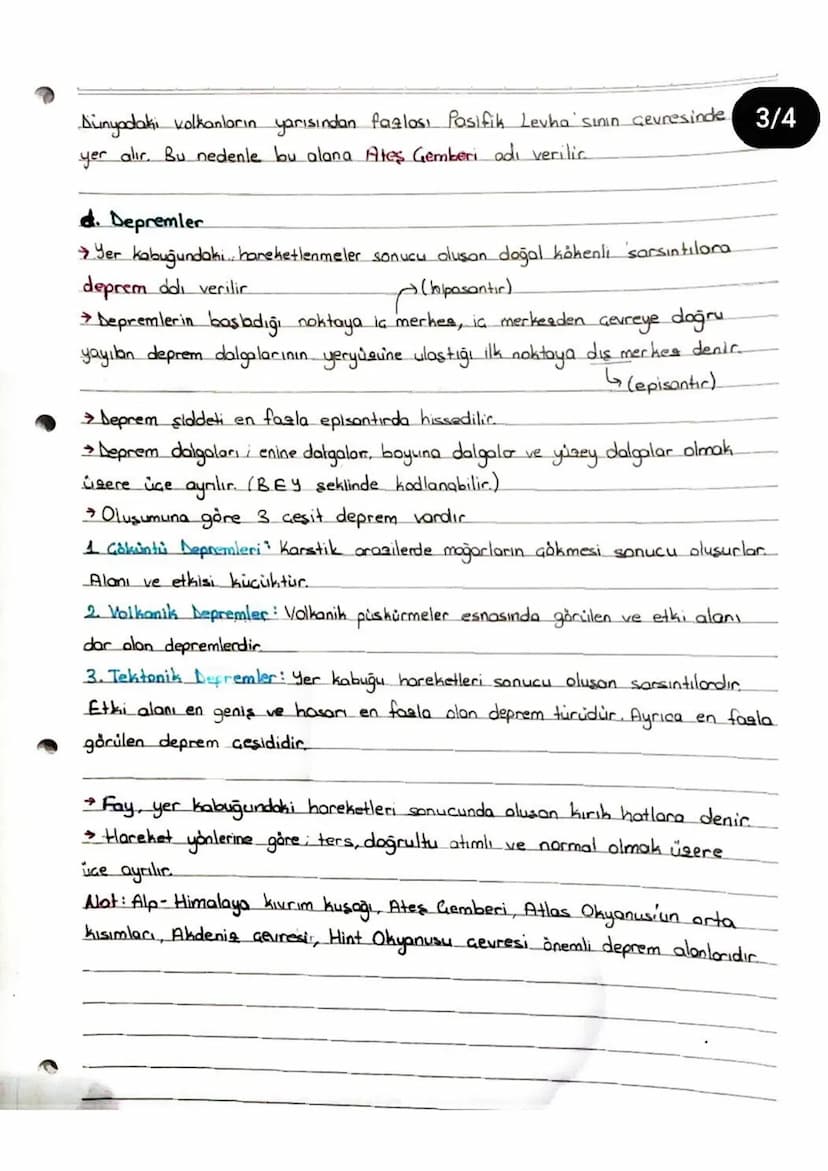 Dünyadaki volkanların yarısından fazlası Pasifik Levha'sının çevresinde
3/4
yer alır. Bu nedenle bu alana Ateş Çemberi adı verilir.
d. Depremler
→ Yer kabuğundaki hareketlenmeler sonucu oluşan doğal kökenli sarsıntılara
deprem adı verilir
→ (hiposantır)
→ Depremlerin başladığı noktaya iç merkez, iç merkezden çevreye doğru
yayılan deprem dalgalarının yeryüzüne ulaştığı ilk noktaya dış merkez denir.
↳ (episantır)
→ Deprem şiddeti en fazla episantırda hissedilir.
→ Deprem dalgaları; enine dalgalar, boyuna dalgalar ve yüzey dalgalar olmak
üzere üçe ayrılır. (BEY şeklinde kodlanabilir.)
→ Oluşumuna göre 3 çeşit deprem vardır
1. Çöküntü Depremleri: Karstik arazilerde mağarların çökmesi sonucu oluşurlar.
Alanı ve etkisi küçüktür.
2. Volkanik Depremler: Volkanik püskürmeler esnasında görülen ve etki alanı
dar olan depremlerdir
3. Tektonik Depremler: Yer kabuğu hareketleri sonucu oluşan sarsıntılardır.
Etki alanı en geniş ve hasarı en fazla olan deprem türüdür. Ayrıca en fazla
görülen deprem çeşididir.
→ Fay, yer kabuğundaki hareketleri sonucunda oluşan kırık hatlara denir.
→ Hareket yönlerine göre; ters, doğrultu atımlı ve normal olmak üzere
üçe ayrılır.
Not: Alp-Himalaya kıvrım kuşağı, Ateş Çemberi, Atlas Okyanusi'un orta
kısımları, Akdeniz çevresi, Hint Okyanusu çevresi önemli deprem alanlarıdır.